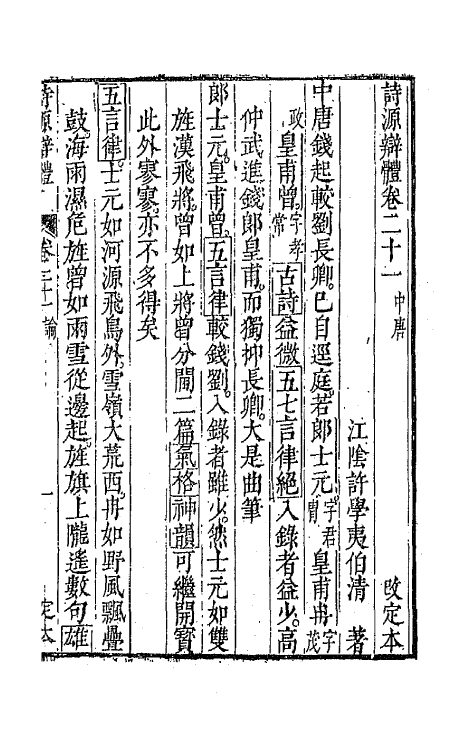 詩源辯體卷二十一 中唐 改定本
江陰許學夷伯清 著
中唐錢起較劉長卿已自逕庭若郎士元字君冑皇甫冉字茂
政皇甫曾字孝常古詩益微五七言律絕入錄者益少高
仲武進錢郎皇甫而獨抑長卿大是曲筆
郎士元皇甫曾五言律較錢劉入錄者雖少然士元如雙
旌漢飛將曾如上將曾分閫二篇氣格神韻可繼開寶
此外寥寥亦不多得矣
五言律士元如河源飛鳥外雪嶺大荒西冉如野風飄疊
鼓海雨濕危旌曾如雨雪從邊起旌旗上隴遙數句雄
詩源辯體 卷二十一 論 一 定本